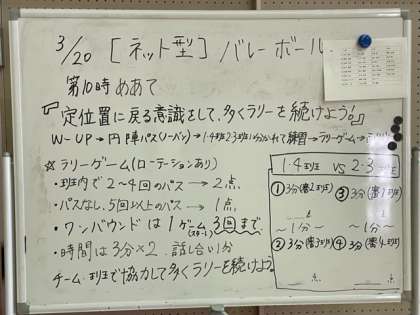 3/20 [ネット型] バレーボール
第10時 めあて
『定位置に戻る意識をして、多くラリーを続けよう!』
W-UP→円陣パス(ノーバン)→1・4班2・3班に分かれて練習→ラリーゲーム→
☆ラリーゲーム(ローテーションあり)
・班内で2〜4回のパス → 2点
・パスなし、5回以上のパス → 1点
・ワンバウンドは1ゲーム3回まで
・時間は3分×2 話し合い1分
チーム・班で協力して多くラリーを続けよう
1・4班 vs 2・3班
①3分(審2班) ③3分(審1班)
点
〜1分〜 〜1分〜
②3分(審3班) ④3分(審4班)
点 点